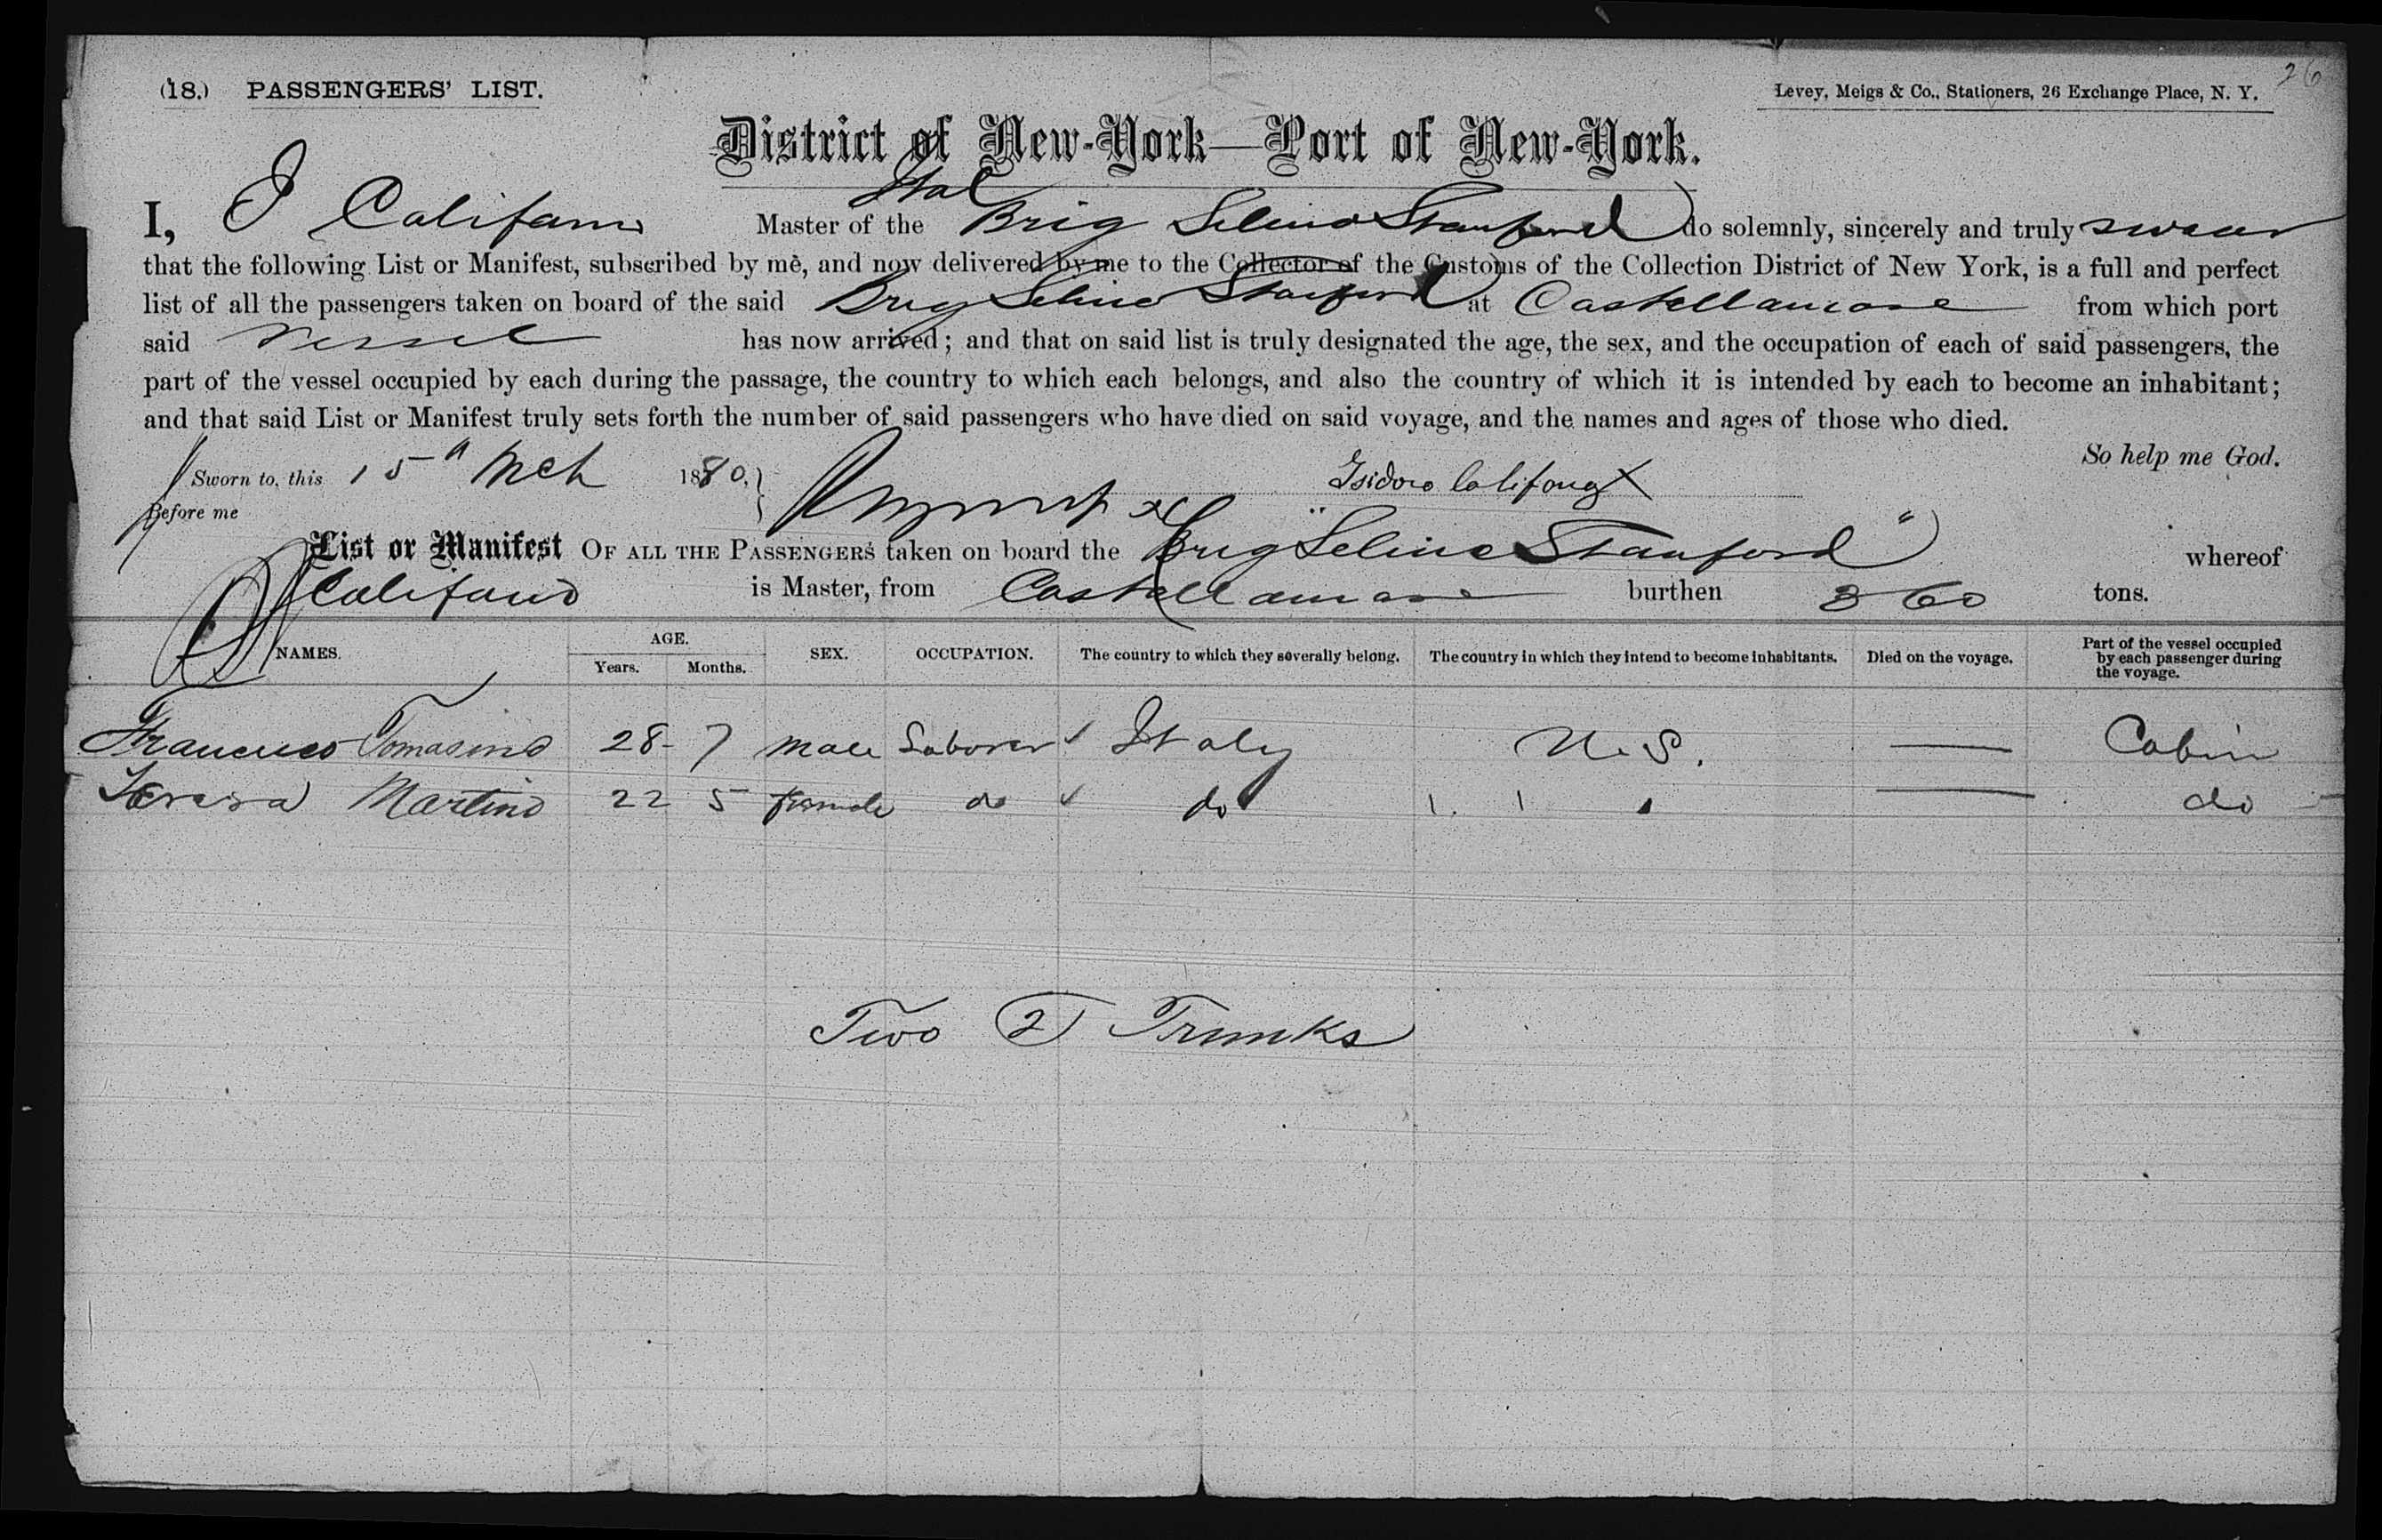 26
(18.) PASSENGERS' LIST. Levey, Meigs & Co., Stationers, 26 Exchange Place, N. Y.
District of New-York—Port of New-York.
Ital
I, I Califano Master of the Brig Selina Stanford do solemnly, sincerely and truly swear
that the following List or Manifest, subscribed by me, and now delivered by me to the Collector of the Customs of the Collection District of New York, is a full and perfect
list of all the passengers taken on board of the said Brig Selina Stanford at Castellamare from which port
said Vessel has now arrived; and that on said list is truly designated the age, the sex, and the occupation of each of said passengers, the
part of the vessel occupied by each during the passage, the country to which each belongs, and also the country of which it is intended by each to become an inhabitant;
and that said List or Manifest truly sets forth the number of said passengers who have died on said voyage, and the names and ages of those who died.
So help me God.
Sworn to, this 15th Mch 1880. Isidoro Califano X
Before me
List or Manifest OF ALL THE PASSENGERS taken on board the Brig "Selina Stanford" whereof
Califano is Master, from Castellamare burthen 360 tons.
NAMES. AGE. Years. Months. SEX. OCCUPATION. The country to which they severally belong. The country in which they intend to become inhabitants. Died on the voyage. Part of the vessel occupied by each passenger during the voyage.
Francisco Tomasino 28 - 7 male Laborer ✓ Italy U. S. — Cabin
Teresa Martino 22 5 female do ✓ do " — do
Two (2) Trunks